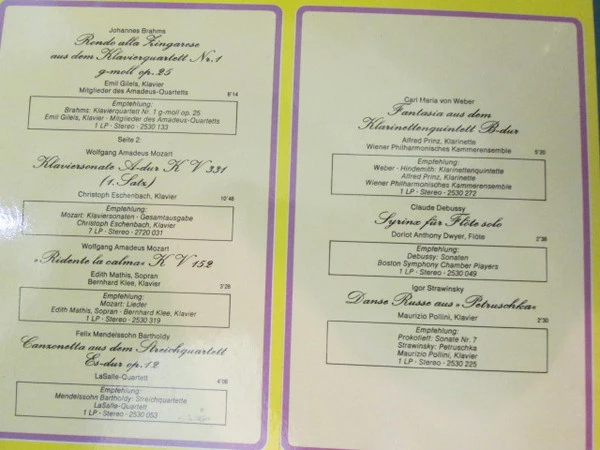 Johannes Brahms
Rondo alla Zingarese
aus dem Klavierquartett Nr. 1
g-moll op. 25
Emil Gilels, Klavier
Mitglieder des Amadeus-Quartetts
8'14
Empfehlung:
Brahms: Klavierquartett Nr. 1 g-moll op. 25
Emil Gilels, Klavier · Mitglieder des Amadeus-Quartetts
1 LP · Stereo · 2530 133
Seite 2:
Wolfgang Amadeus Mozart
Klaviersonate A-dur K V 331
(1. Satz)
Christoph Eschenbach, Klavier
10'48
Empfehlung:
Mozart: Klaviersonaten · Gesamtausgabe
Christoph Eschenbach, Klavier
7 LP · Stereo · 2720 031
Wolfgang Amadeus Mozart
»Ridente la calma« K V 152
Edith Mathis, Sopran
Bernhard Klee, Klavier
Empfehlung:
Mozart: Lieder
Edith Mathis, Sopran · Bernhard Klee, Klavier
1 LP · Stereo · 2530 319
Felix Mendelssohn Bartholdy
Canzonetta aus dem Streichquartett
Es-dur op. 12
LaSalle-Quartett
Empfehlung:
Mendelssohn Bartholdy: Streichquartette
LaSalle-Quartett
1 LP · Stereo · 2530 053
Carl Maria von Weber
Fantasia aus dem
Klarinettenquintett B-dur
Alfred Prinz, Klarinette
Wiener Philharmonisches Kammerensemble
Empfehlung:
Weber · Hindemith: Klarinettenquintette
Alfred Prinz, Klarinette
Wiener Philharmonisches Kammerensemble
1 LP · Stereo · 2530 272
Claude Debussy
Syrinx für Flöte solo
Doriot Anthony Dwyer, Flöte
Empfehlung:
Debussy: Sonaten
Boston Symphony Chamber Players
1 LP · Stereo · 2530 049
Igor Strawinsky
Danse Russe aus »Petruschka«
Maurizio Pollini, Klavier
Empfehlung:
Prokofieff: Sonate Nr. 7
Strawinsky: Petruschka
Maurizio Pollini, Klavier
1 LP · Stereo · 2530 225